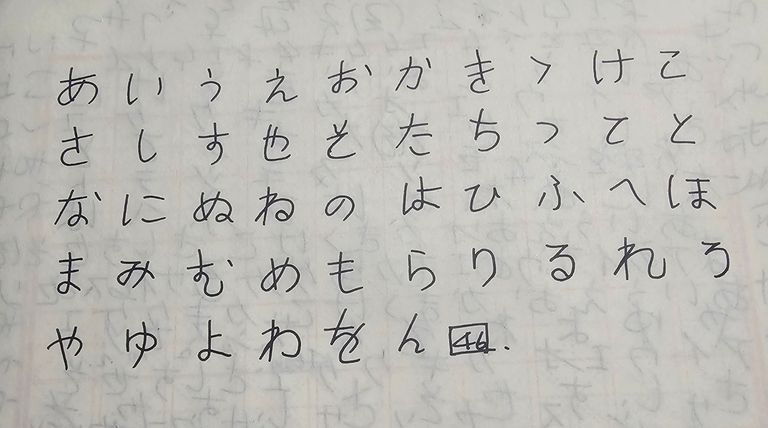 あ い う え お か き く け こ
さ し す せ そ た ち つ て と
な に ぬ ね の は ひ ふ へ ほ
ま み む め も ら り る れ ろ
や ゆ よ わ を ん 46.